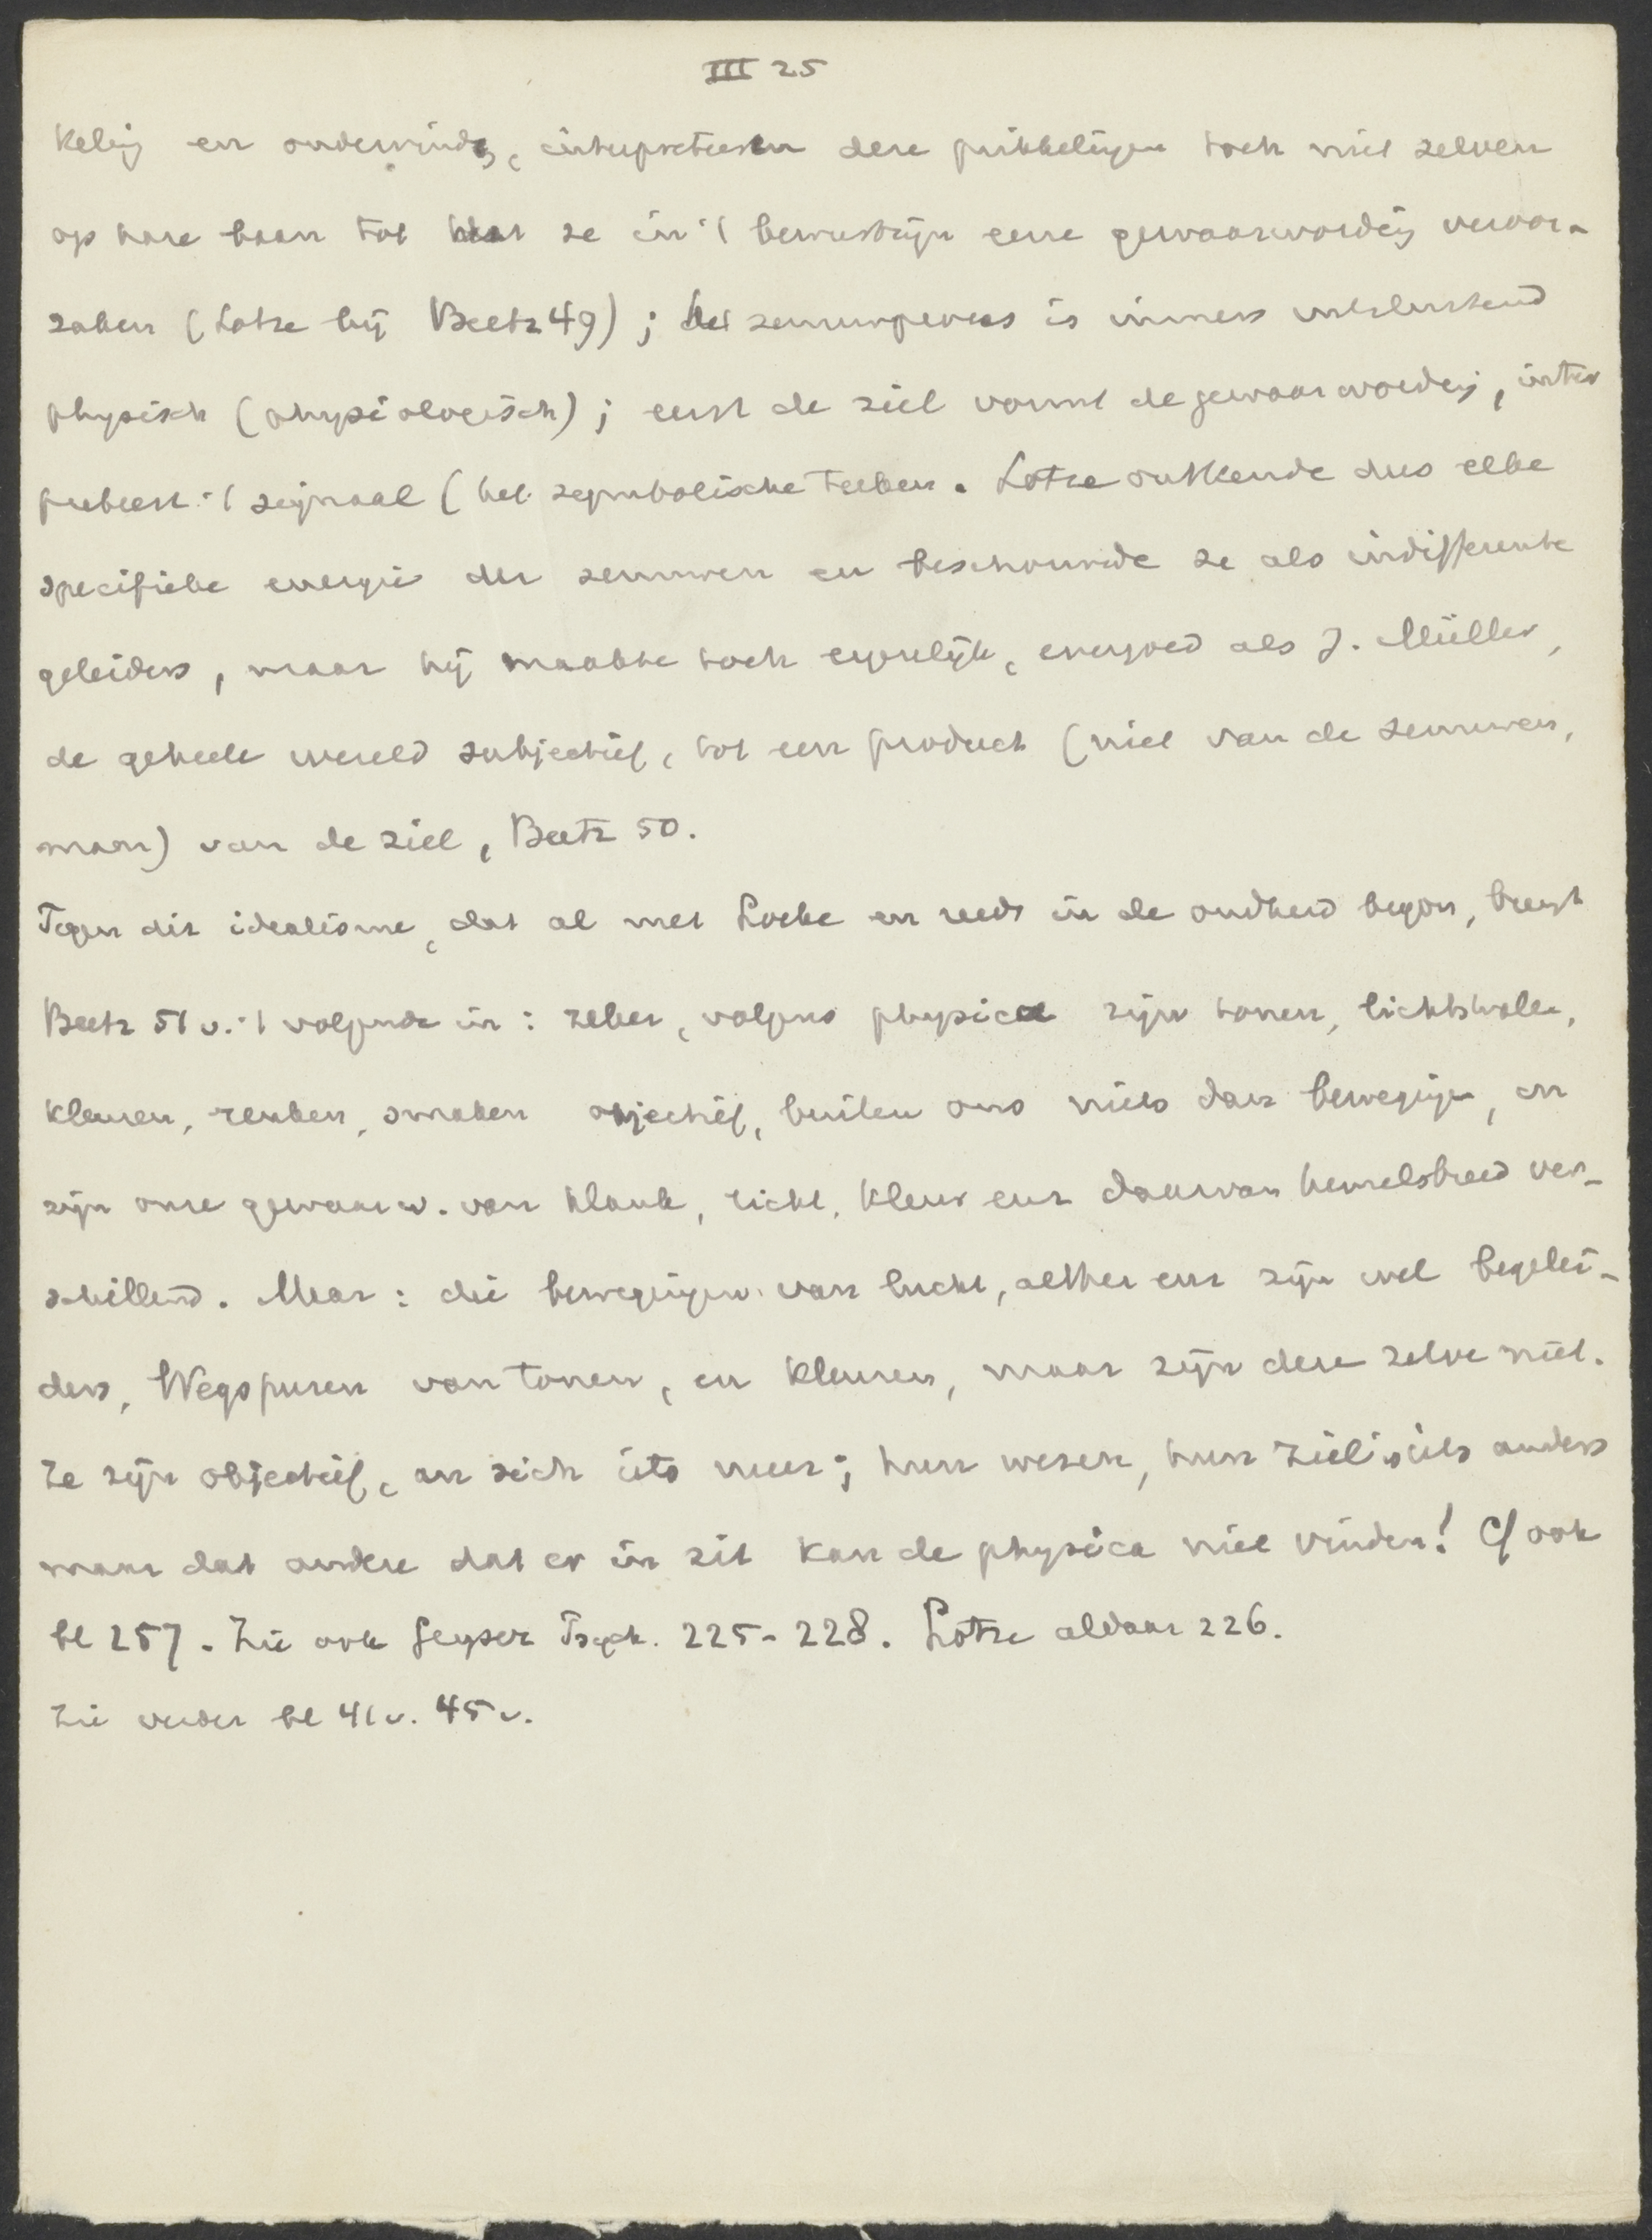 III 25
keling en ondervinding, interpreteeren deze prikkelingen toch niet zelven
op hare baan tot dat ze in 't bewustzijn eene gewaarwording veroor-
zaken (Lotze bij Beetz 49); het zenuwproces is immers uitsluitend
physisch (physiologisch); eerst de ziel vormt de gewaarwording, inter
preteert 't signaal (het symbolische teeken. Lotze ontkende dus elke
specifieke energie der zenuwen en beschouwde ze als indifferente
geleiders, maar hij maakte toch eigenlijk, evengoed als J. Müller,
de geheele wereld subjectief, tot een product (niet van de zenuwen,
maar) van de ziel, Beetz 50.
Tegen dit idealisme, dat al met Locke en reeds in de oudheid begon, brengt
Beetz 51 v. 't volgende in: zeker, volgens physica zijn tonen, lichtstralen,
kleuren, reuken, smaken objectief, buiten ons niets dan bewegingen, en
zijn onze gewaarw. van klank, licht, kleur enz daarvan hemelsbreed ver-
schillend. Maar: die bewegingen van lucht, aether enz zijn wel begelei-
ders, Wegspuren van tonen, en kleuren, maar zijn deze zelve niet.
Ze zijn objectief, an sich iets meer; hun wezen, hun ziel is iets anders
maar dat andere dat er in zit kan de physica niet vinden! Cf ook
bl 257. Zie ook Geyser Psych. 225-228. Lotze aldaar 226.
Zie verder bl 41 v. 45 v.